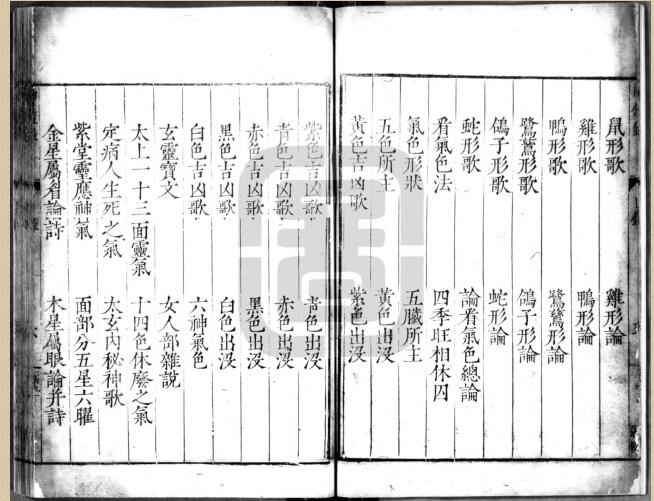 鼠形歌 雞形論
雞形歌 鴨形論
鴨形歌 鷺鷥形論
鷺鷥形歌 鴿子形論
鴿子形歌 蛇形論
蛇形歌 論看氣色總論
看氣色法 四季旺相休囚
氣色形狀 五臟所主
五色所主 黃色出沒
黃色吉凶歌 紫色出沒
紫色吉凶歌 青色出沒
青色吉凶歌 赤色出沒
赤色吉凶歌 黑色出沒
黑色吉凶歌 白色出沒
白色吉凶歌 六神氣色
玄靈寶文 女人部雜說
太上一十三面靈氣 十四色休廢之氣
定病人生死之氣 太玄內秘神歌
紫堂靈應神氣 面部分五星六曜
金星屬 論 詩 木星屬眼論并詩